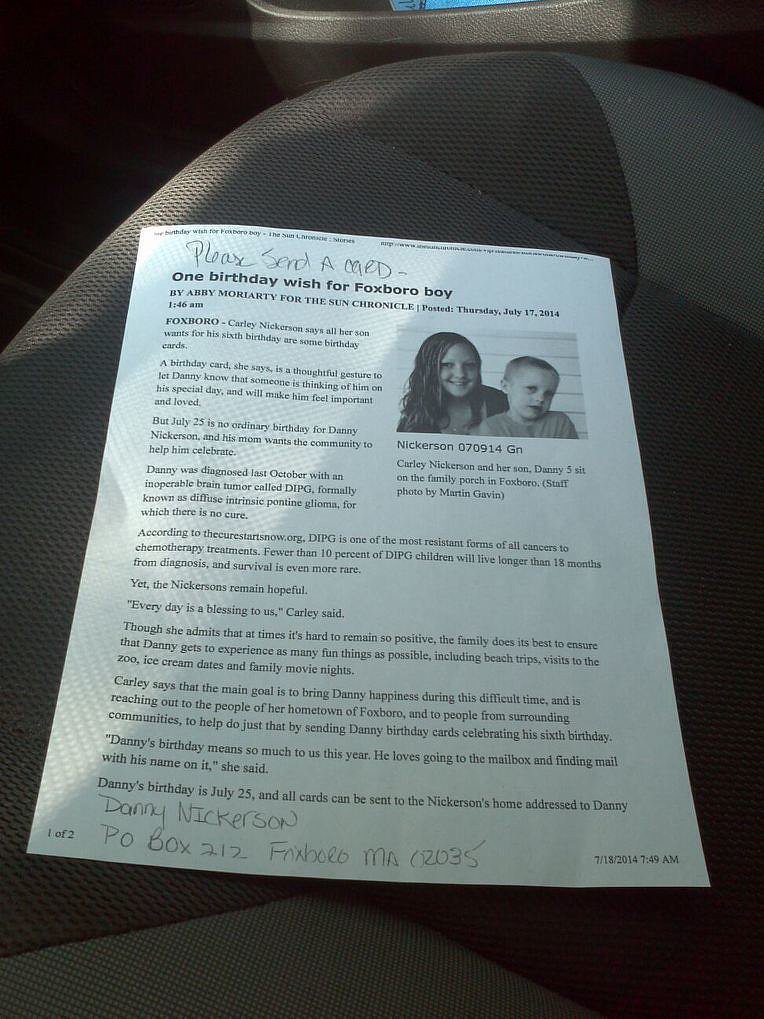 One birthday wish for Foxboro boy - The Sun Chronicle : Stories
Please Send A CARD -
One birthday wish for Foxboro boy
BY ABBY MORIARTY FOR THE SUN CHRONICLE | Posted: Thursday, July 17, 2014
1:46 am
FOXBORO - Carley Nickerson says all her son
wants for his sixth birthday are some birthday
cards.
A birthday card, she says, is a thoughtful gesture to
let Danny know that someone is thinking of him on
his special day, and will make him feel important
and loved.
But July 25 is no ordinary birthday for Danny
Nickerson, and his mom wants the community to
help him celebrate.
Danny was diagnosed last October with an
inoperable brain tumor called DIPG, formally
known as diffuse intrinsic pontine glioma, for
which there is no cure.
Nickerson 070914 Gn
Carley Nickerson and her son, Danny 5 sit
on the family porch in Foxboro. (Staff
photo by Martin Gavin)
According to thecurestartsnow.org, DIPG is one of the most resistant forms of all cancers to
chemotherapy treatments. Fewer than 10 percent of DIPG children will live longer than 18 months
from diagnosis, and survival is even more rare.
Yet, the Nickersons remain hopeful.
"Every day is a blessing to us," Carley said.
Though she admits that at times it's hard to remain so positive, the family does its best to ensure
that Danny gets to experience as many fun things as possible, including beach trips, visits to the
zoo, ice cream dates and family movie nights.
Carley says that the main goal is to bring Danny happiness during this difficult time, and is
reaching out to the people of her hometown of Foxboro, and to people from surrounding
communities, to help do just that by sending Danny birthday cards celebrating his sixth birthday.
"Danny's birthday means so much to us this year. He loves going to the mailbox and finding mail
with his name on it," she said.
Danny's birthday is July 25, and all cards can be sent to the Nickerson's home addressed to Danny
Danny Nickerson
PO Box 212 Foxboro MA 02035
1 of 2
7/18/2014 7:49 AM